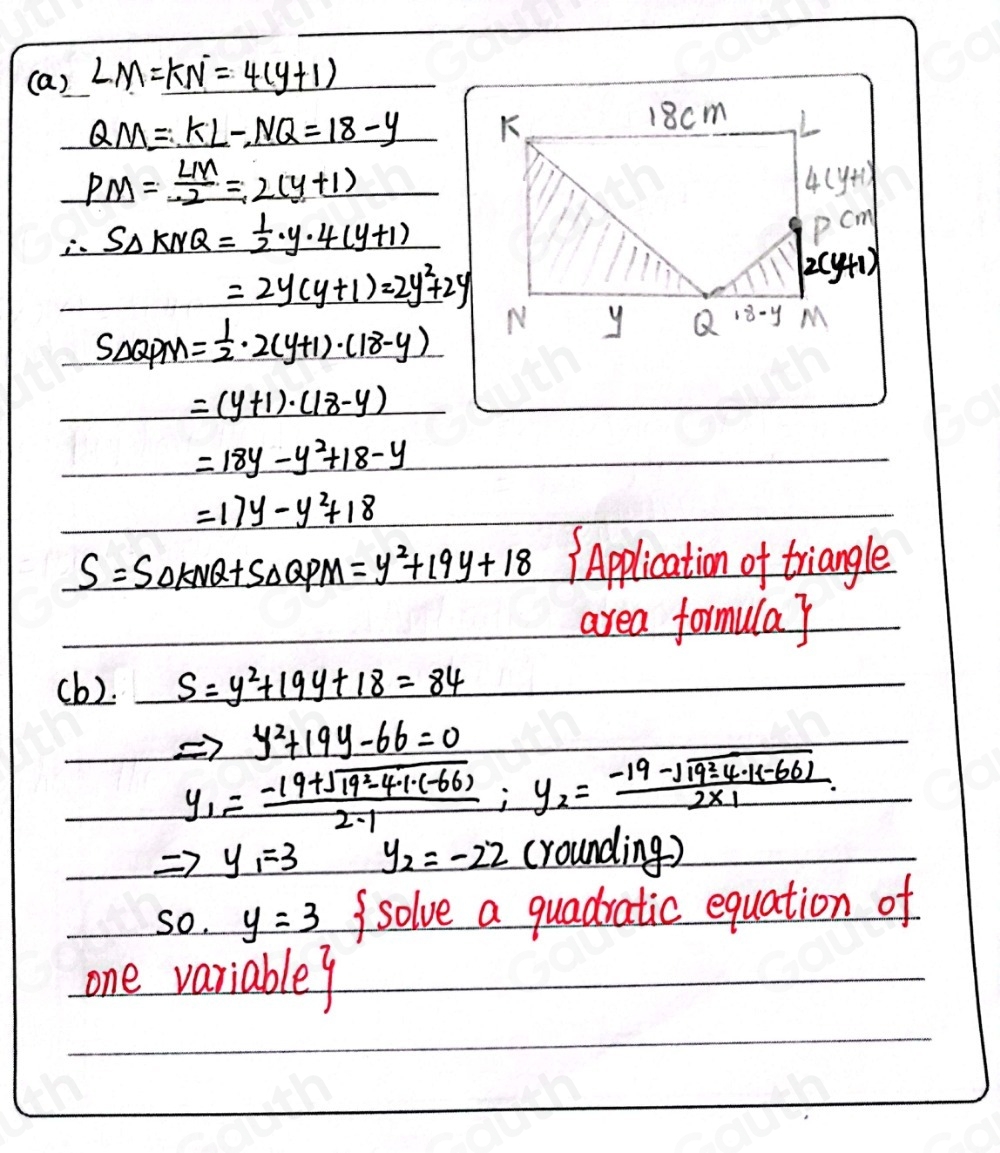 (a) LM=KN=4(y+1)
QM=KL-NQ=18-y
PM=LM/2=2(y+1)
∴ S△KNQ=1/2·y·4(y+1)
=2y(y+1)=2y²+2y
S△QPM=1/2·2(y+1)·(18-y)
=(y+1)·(18-y)
=18y-y²+18-y
=17y-y²+18
S=S△KNQ+S△QPM=y²+19y+18 {Application of triangle
area formula}
K 18cm L
4(y+1)
P cm
2(y+1)
N y Q 18-y M
(b). S=y²+19y+18=84
=> y²+19y-66=0
y₁=(-19+√(19²-4·1·(-66)))/(2·1); y₂=(-19-√(19²-4·1·(-66)))/(2×1).
=> y₁=3 y₂=-22 (rounding)
so. y=3 {solve a quadratic equation of
one variable}
Gauth